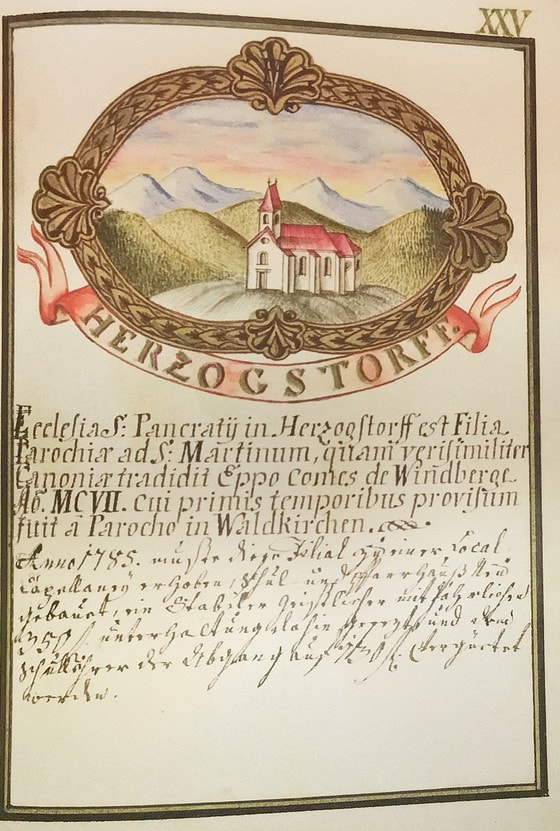 XXV
HERZOGSTORFF.
Ecclesia S: Pancratÿ in Herzogstorff est Filia
Parochiæ ad S: Martinum, quam verisimiliter
Canoniæ tradidit Eppo Comes de Windberge
Aõ. MCVII. cui primis temporibus provisum
fuit à Parocho in Waldkirchen.
Anno 1785. muste diese Filial zu einer Local
Capellaney erhoben, Schul und Pfarrhauß Neu
gebauet, ein Stabiler Geistlicher mit jährlichen
unterhaltung dahin gesezt, und dem
Schullehrer der Abgang auf vergüttet
werden.